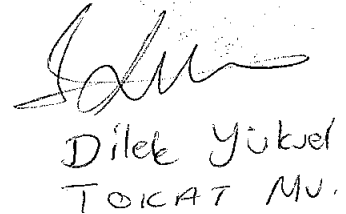 Dilek Yüksel
TOKAT MV.